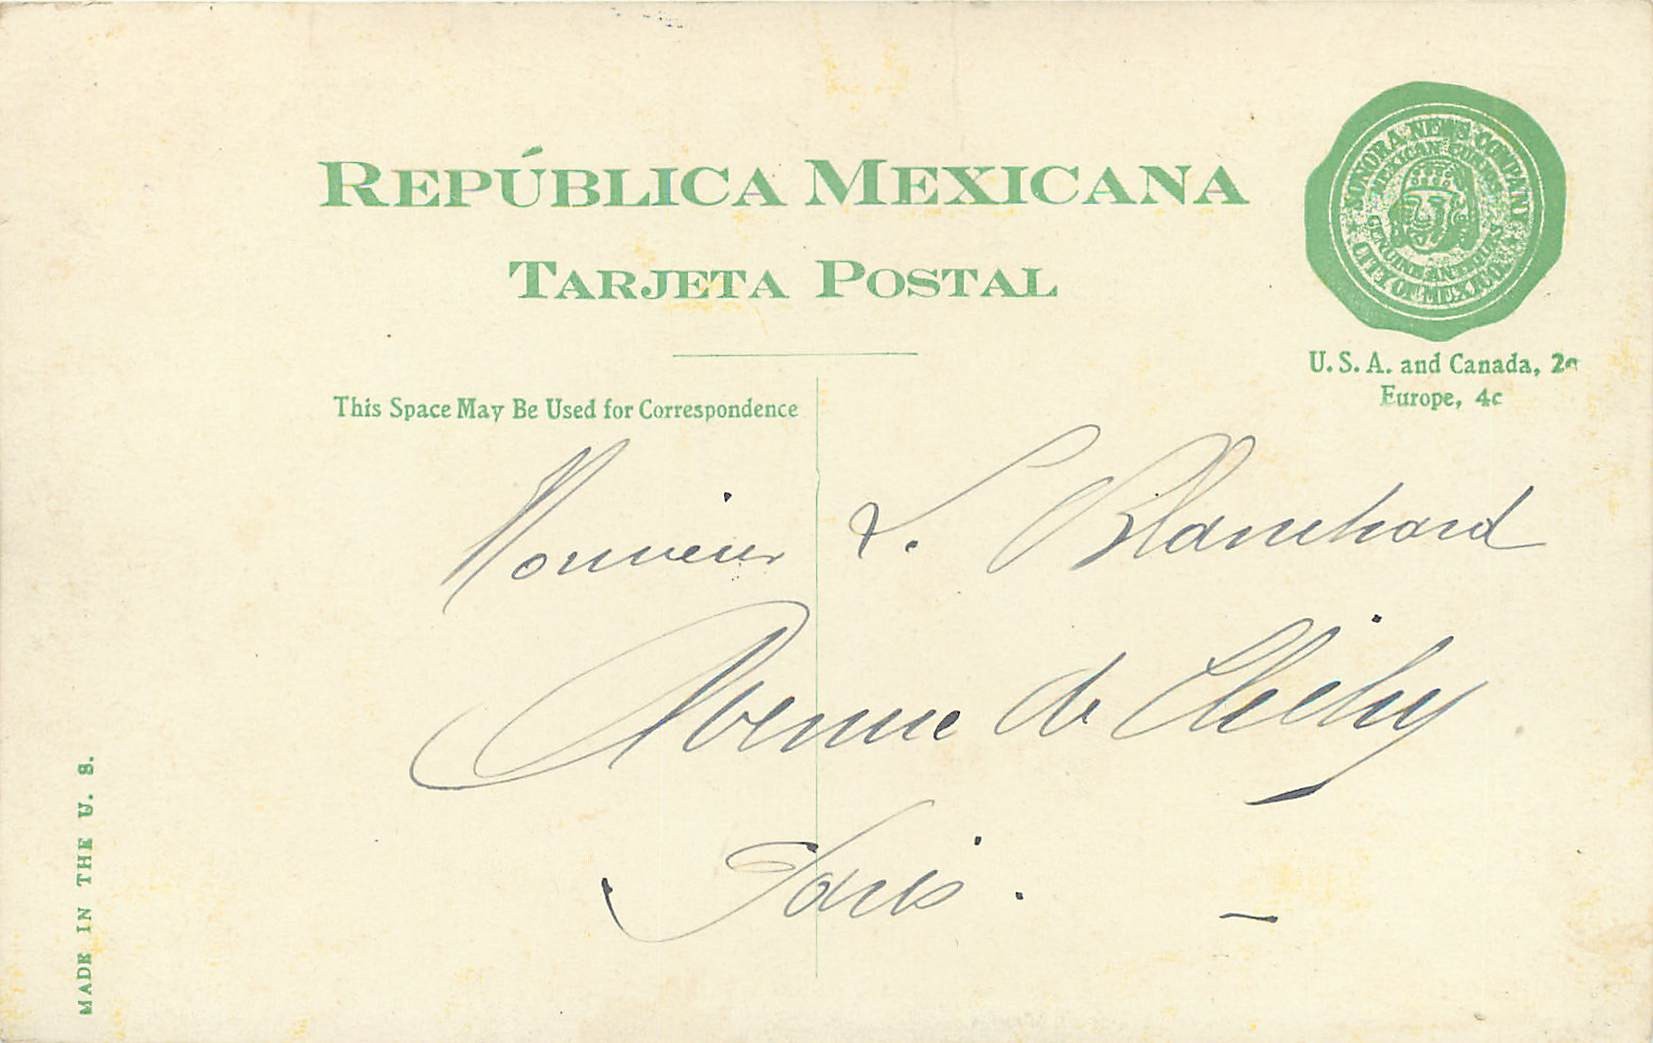 REPÚBLICA MEXICANA
TARJETA POSTAL
SONORA NEWS COMPANY
MEXICAN CURIOS
GENUINE ANTIQUES
U.S.A. and Canada, 2c
Europe, 4c
This Space May Be Used for Correspondence
Monsieur L. Blanchard
Avenue de Clichy
Paris.
MADE IN THE U. S.